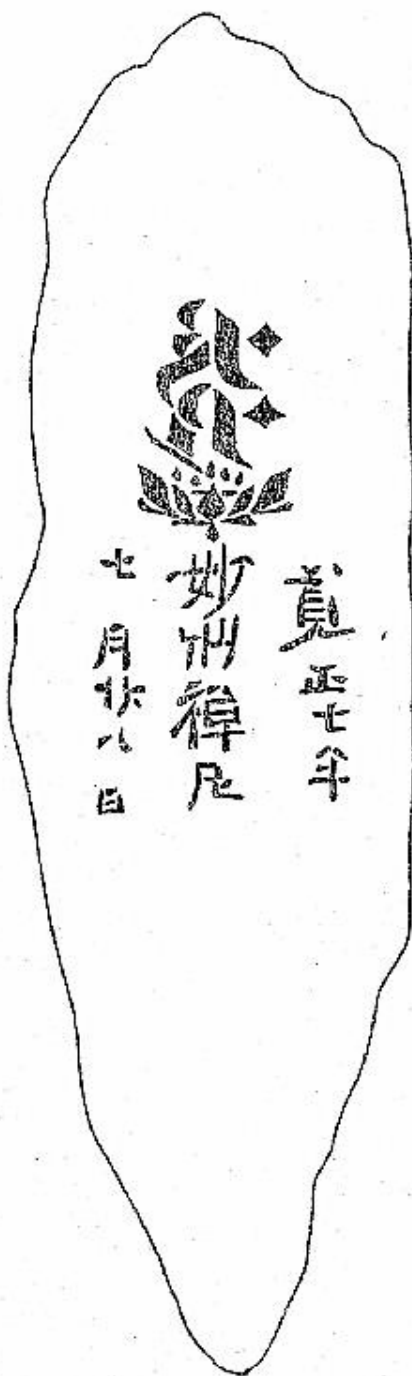 寛正七年
妙禪尼
七月廿八日